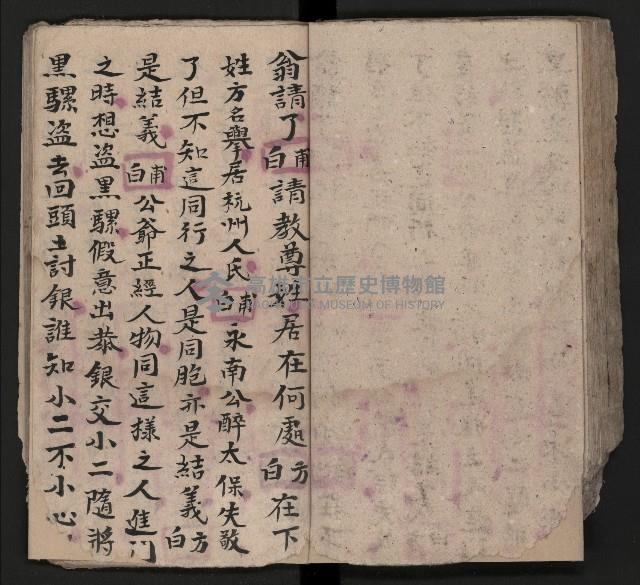 翁請了甫白請教尊姓居在何處方白在下
姓方名舉居杭州人氏甫白永南公醉太保失敬
了但不知這同行之人是同胞亦是結義方白
是結義甫白公爺正經人物同這樣之人進门
之時想盗黑騾假意出恭銀交小二隨將
黑騾盗去回頭土討銀誰知小二不小心
高雄市立歷史博物館
KAOHSIUNG MUSEUM OF HISTORY